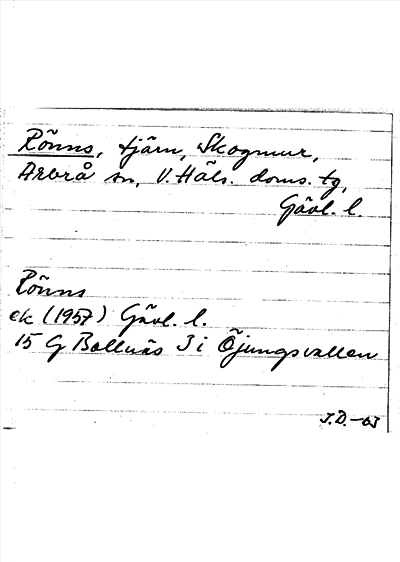 Rönns, tjärn, Skogmur,
Arbrå sn, V. Häls. doms. tg,
Gävl. l.
Rönns
ek (1957) Gävl. l.
15 G Bollnäs 3 i Öjungsvallen
J.D.-63